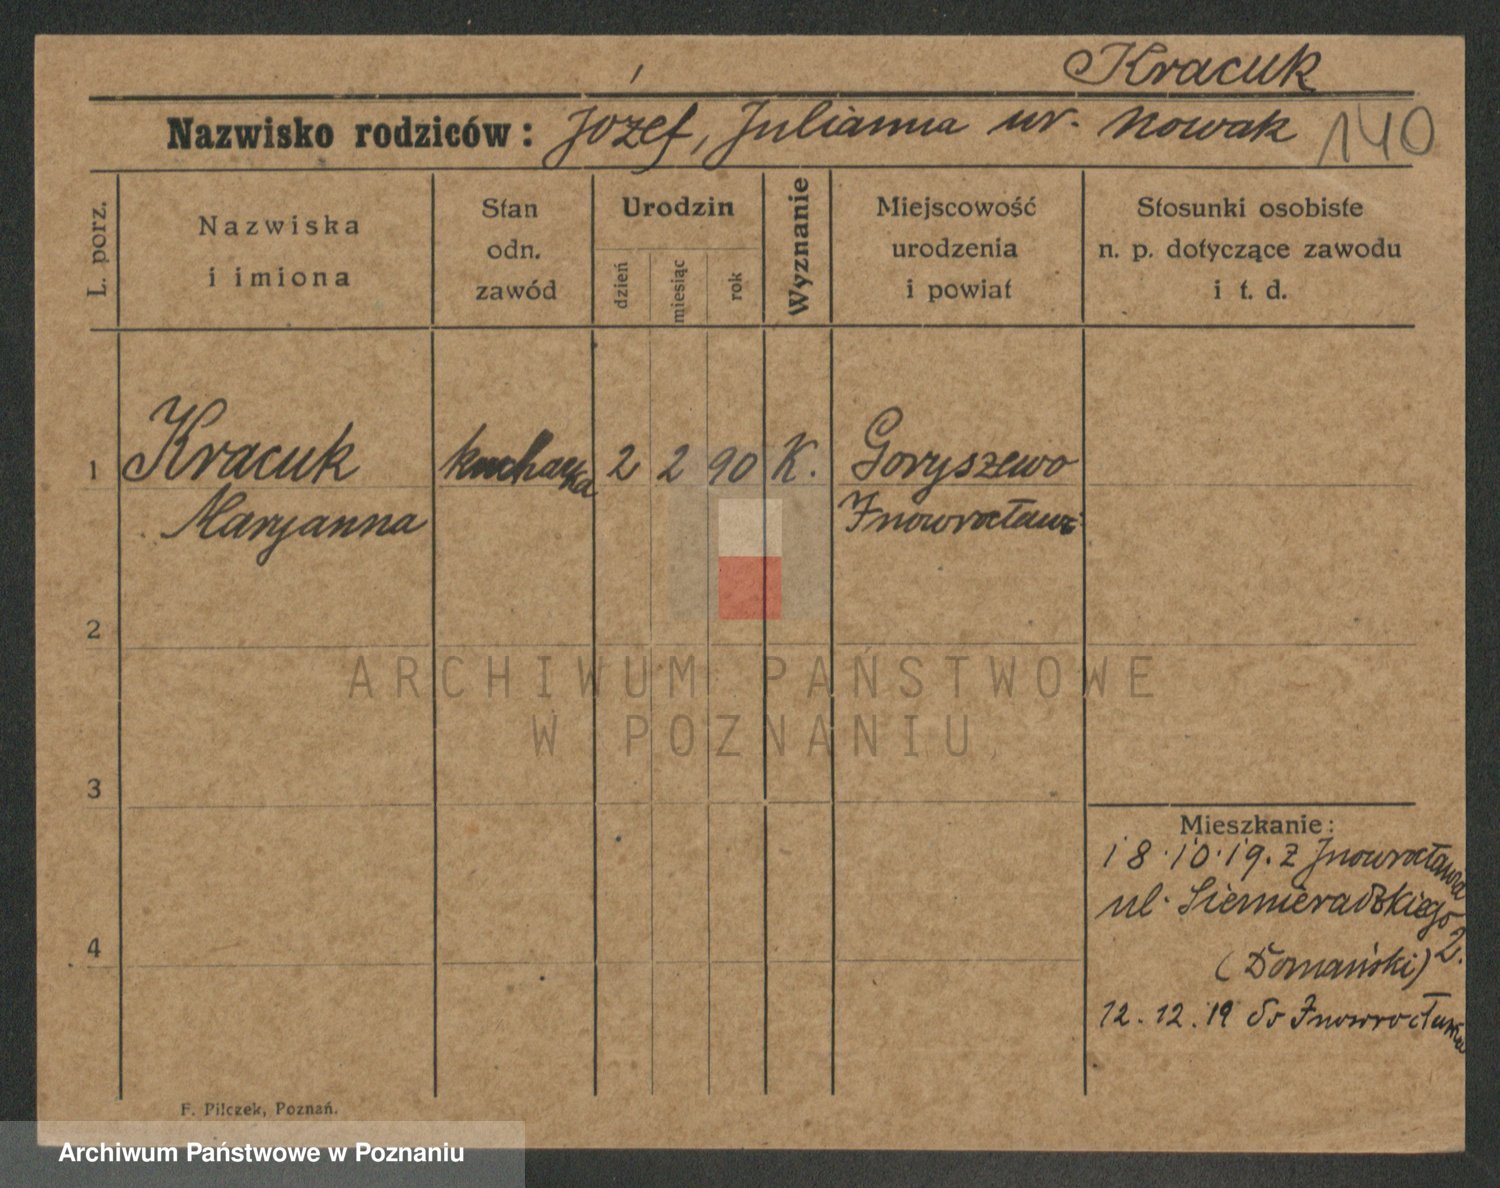 Kracuk
Nazwisko rodziców: Józef, Julianna ur. Nowak 140
L. porz.
Nazwiska
i imiona
Stan
odn.
zawód
Urodzin
dzień
miesiąc
rok
Wyznanie
Miejscowość
urodzenia
i powiat
Stosunki osobiste
n. p. dotyczące zawodu
i t. d.
1 Kracuk kucharka 2 2 90 K. Goryszewo
Maryanna Inowrocław
2
3
4
Mieszkanie:
18.10.19. z Inowrocławia
ul. Siemieradzkiego 2.
(Domański)
12.12.19 do Inowrocławia
F. Pilczek, Poznań.
ARCHIWUM PAŃSTWOWE
W POZNANIU
Archiwum Państwowe w Poznaniu